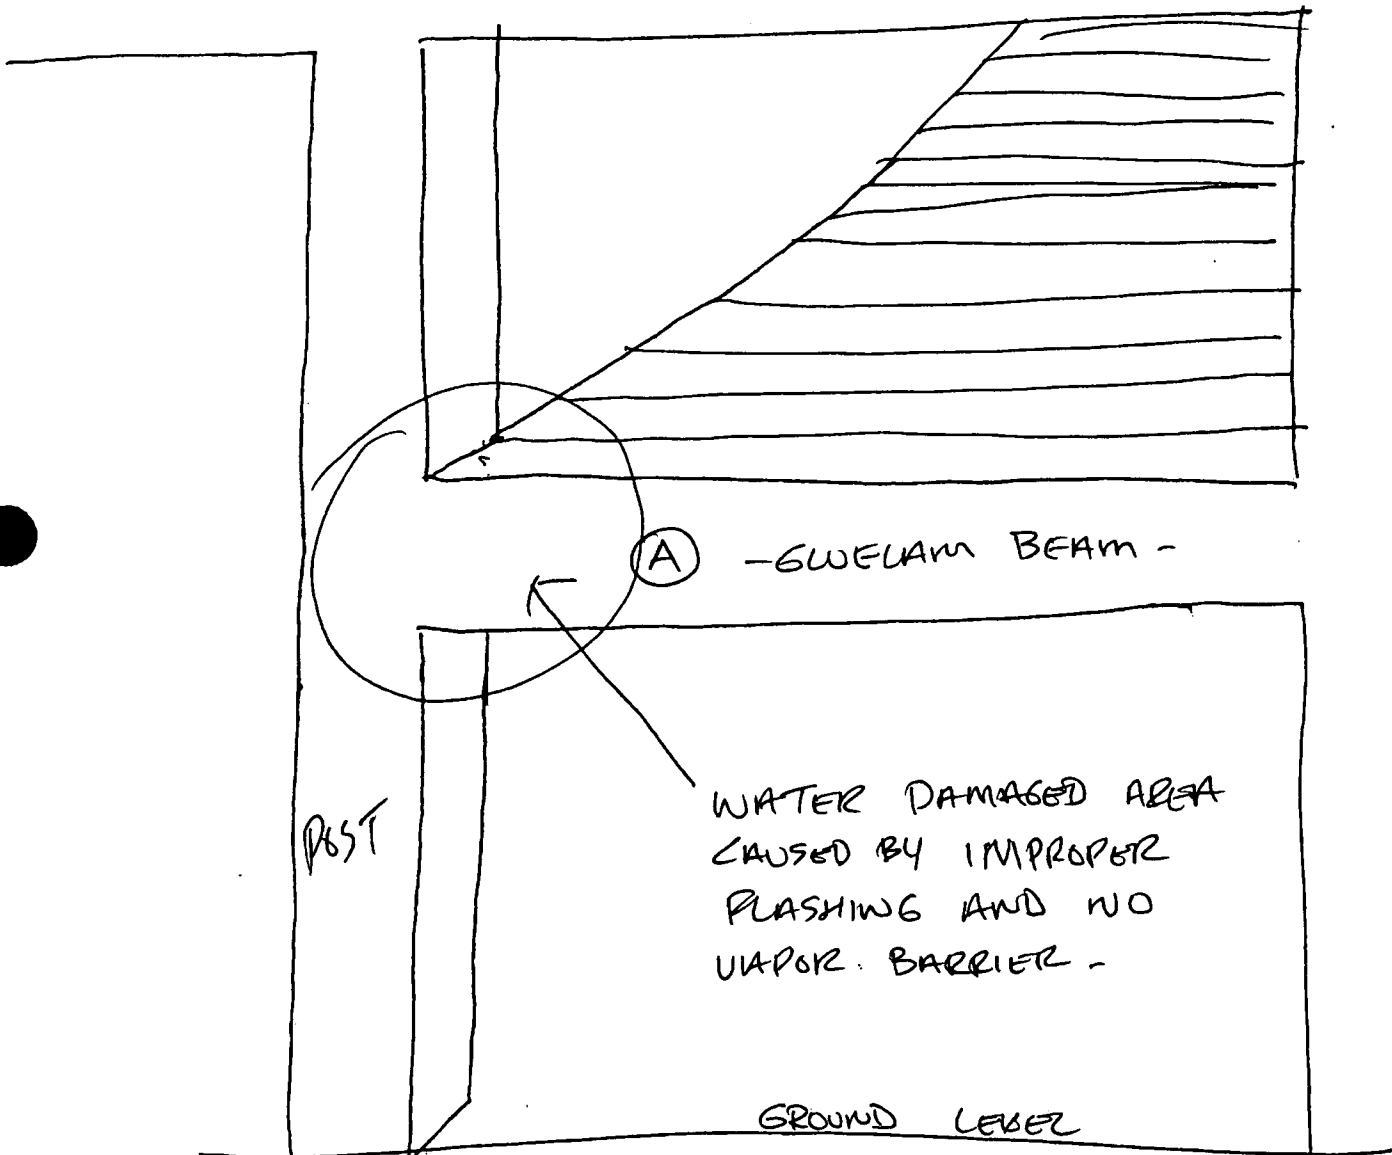 A -GLUELAM BEAM-
POST
WATER DAMAGED AREA
CAUSED BY IMPROPER
FLASHING AND NO
VAPOR BARRIER-
GROUND LEVEL